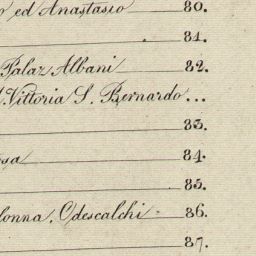 o ed Anastasio 80.
81.
Palaz Albani 82.
Vittoria S. Bernardo...
83.
osa 84.
85.
lonna, Odescalchi 86.
87.